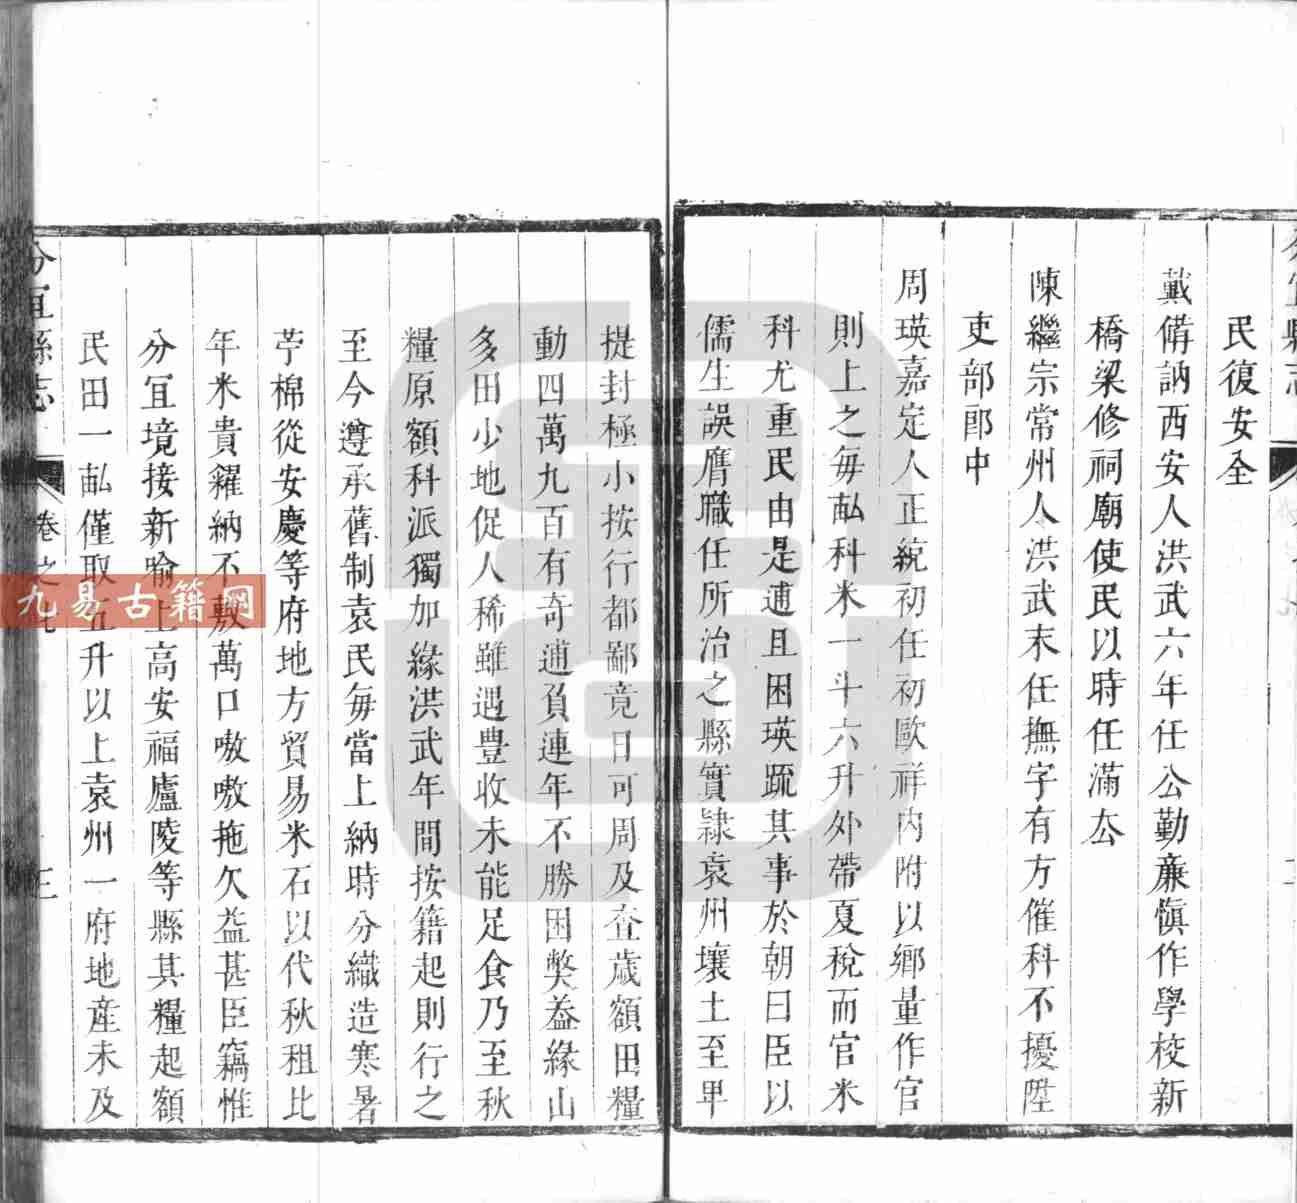 民復安全
戴脩訥西安人洪武六年任公勤廉愼作學校新
橋梁修祠廟使民以時任滿厺
陳繼宗常州人洪武末任撫字有方催科不擾陞
吏部郎中
周瑛嘉定人正統初任初歐祥内附以鄉量作官
則上之每畝科米一斗六升外帶夏稅而官米
科尤重民由是逋且困瑛疏其事於朝曰臣以
儒生誤膺職任所治之縣實隸袁州壤土至卑
提封極小按行都鄙竟日可周及查歲額田糧
動四萬九百有奇逋負連年不勝困獘葢緣山
多田少地促人稀雖遇豊收未能足食乃至秋
糧原額科派獨加緣洪武年間按籍起則行之
至今遵承舊制袁民每當上納時分織造寒暑
苧棉從安慶等府地方貿易米石以代秋租比
年米貴糴納不敷萬口嗷嗷拖欠益甚臣竊惟
分宜境接新喻上高安福廬陵等縣其糧起額
民田一畝僅取五升以上袁州一府地産未及
分宜縣志
卷之七
九易古籍網